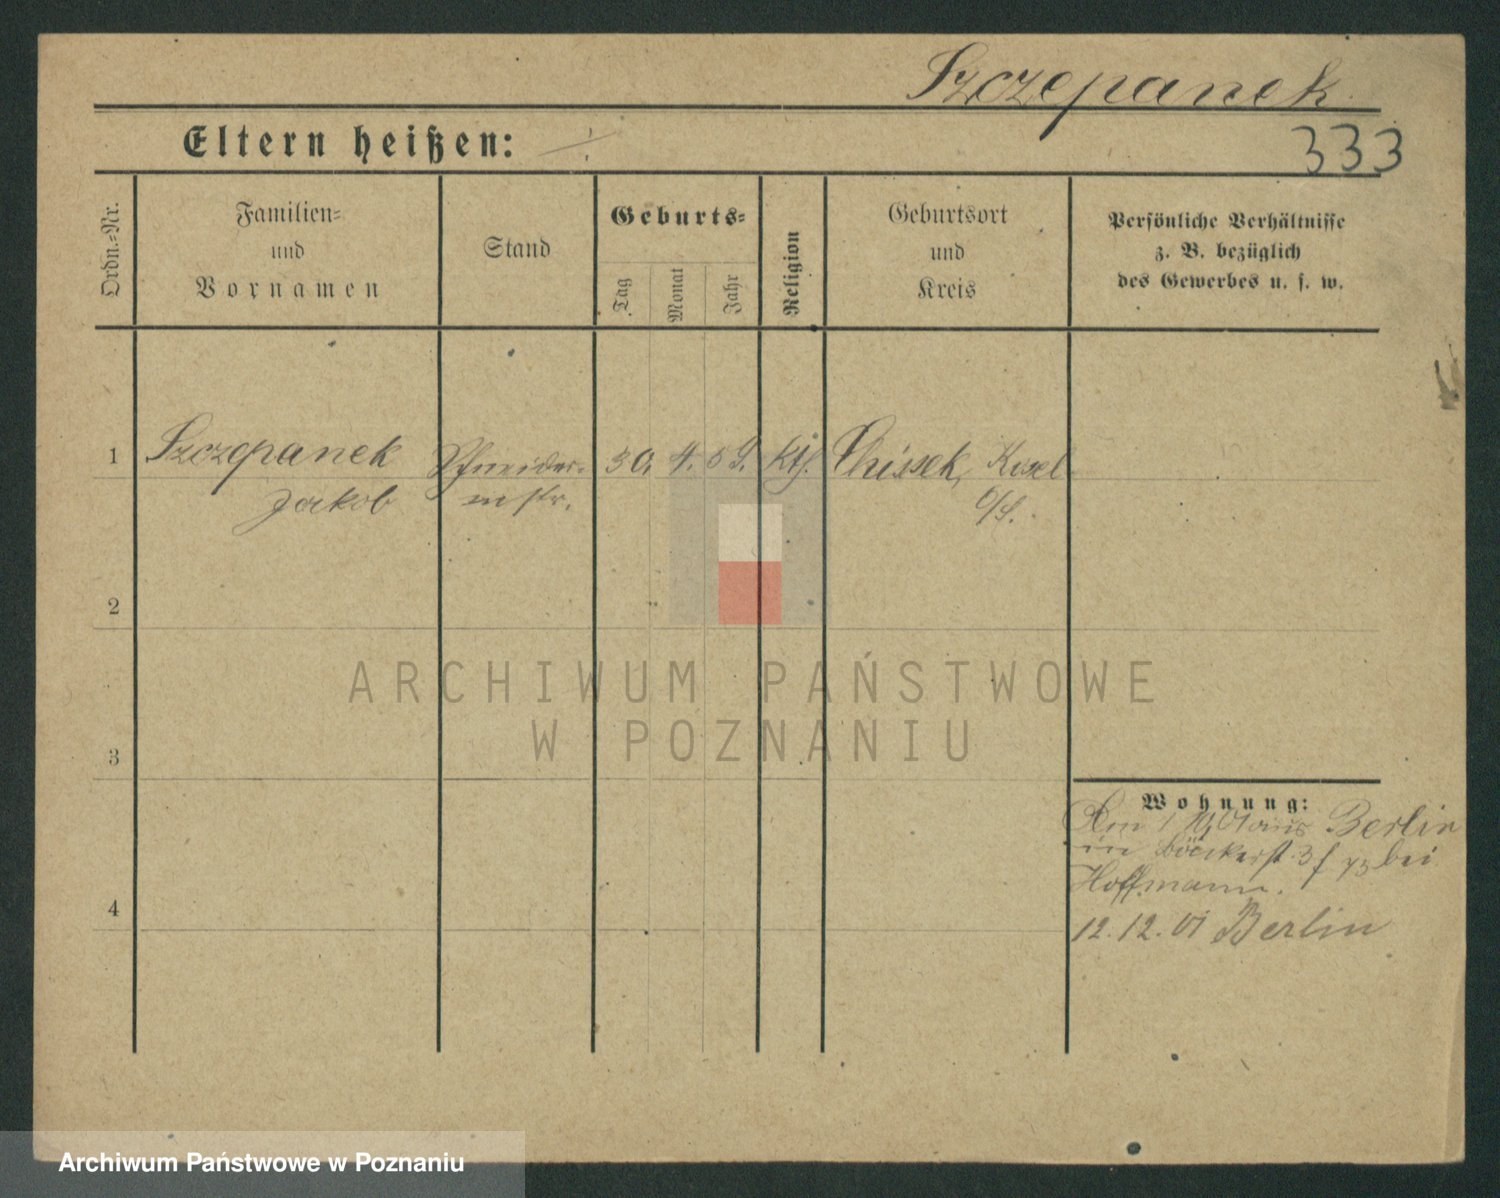 Szczepanek
Eltern heißen: ./.
333
Ordn.-Nr.
Familien-
und
Vornamen
Stand
Geburts-
Tag
Monat
Jahr
Religion
Geburtsort
und
Kreis
Persönliche Verhältnisse
z. B. bezüglich
des Gewerbes u. s. w.
1
Szczepanek
Jakob
Schneider-
mstr.
30. 4. 59.
kth.
Chissek, Kosel
O/S.
2
ARCHIWUM PAŃSTWOWE
W POZNANIU
3
Wohnung:
Am 1 Berlin
bei
Hoffmann.
4
12.12.01 Berlin
Archiwum Państwowe w Poznaniu